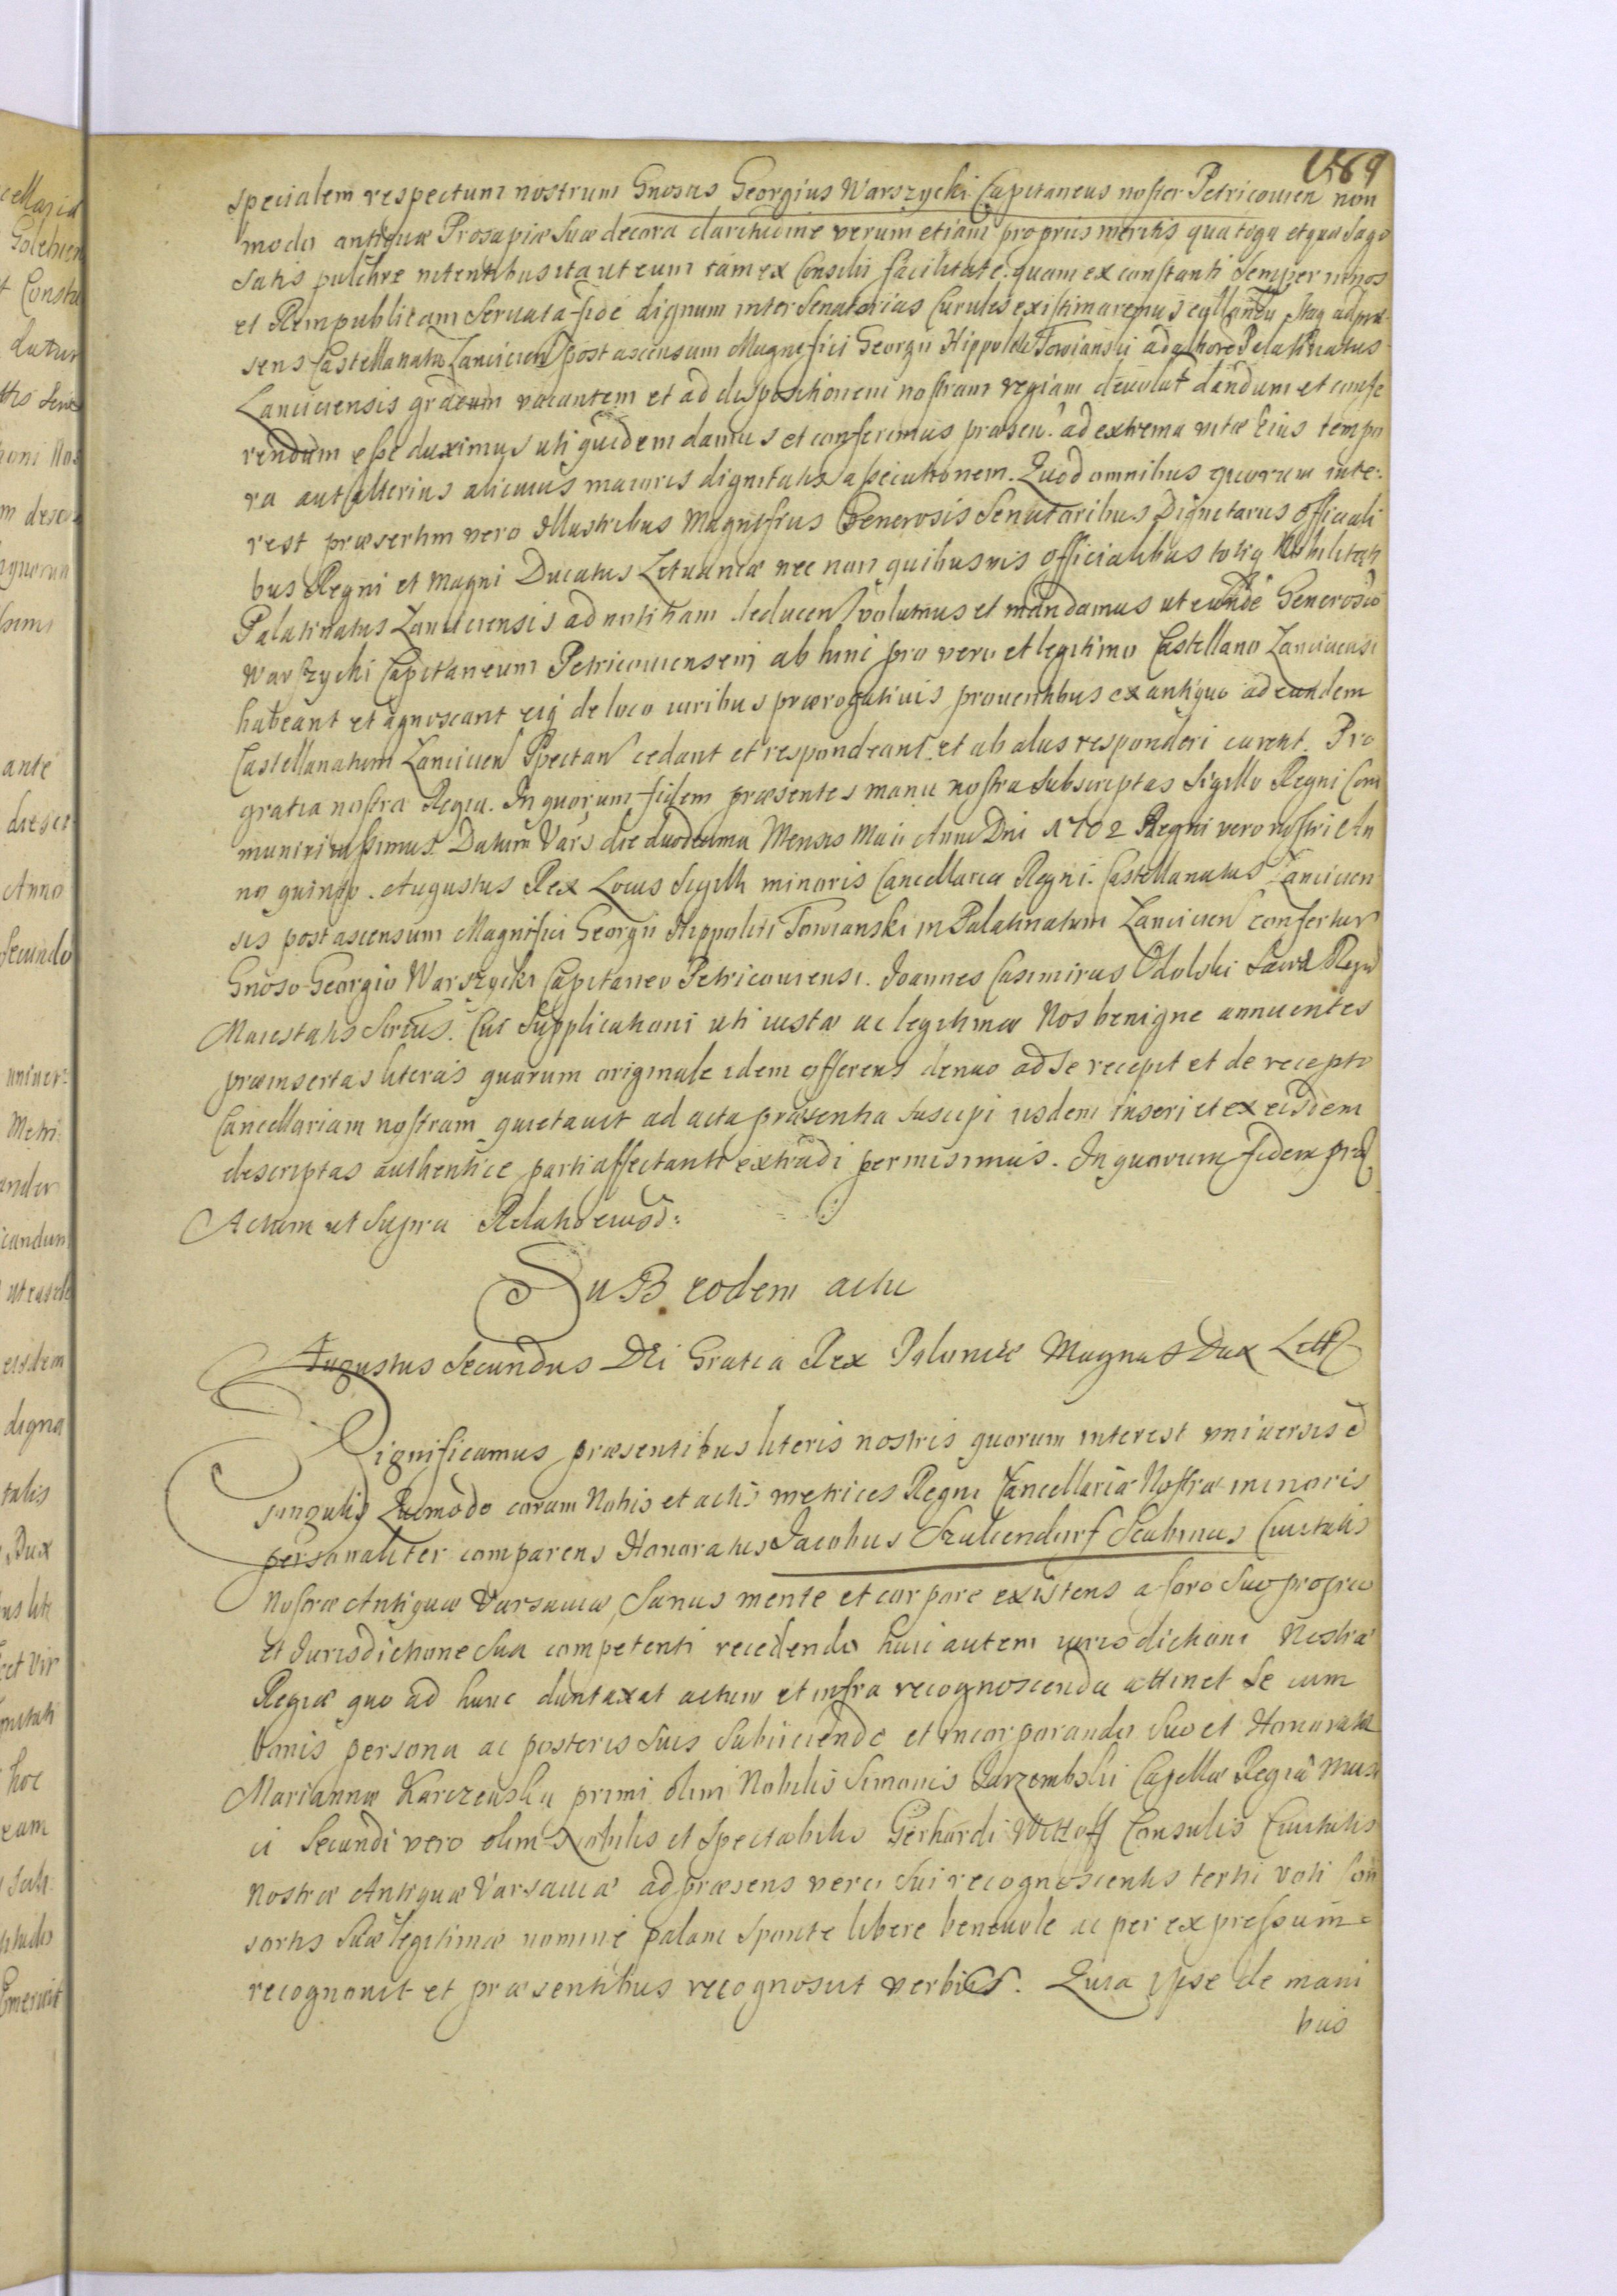 569
specialem respectum nostrum Gnosus Georgius Warszycki Capitaneus noster Petricouien non
modo antiquæ Prosapiæ suæ decora claritudine verum etiam proprijs meritis qua toga et qua sago
satis pulchre nitentibus ita ut eum tam ex Consilij facilitate quam ex constanti semper in nos
et Rempublicam seruata fide dignum inter Senatorias Curules existimaremus Itaq ad præ
sens Castellanatu Lancicien post ascensum Magnifici Georgii Hippoliti Towianski ad Palatinatus
Lanciciensis gradum vacantem et ad dispositionem nostram regiam deuolut dandum et confe
rendum esse duximus uti quidem damus et conferimus præsen: ad extrema vitæ Eius tempo
ra aut alterius alicuius maioris dignitatis assecutionem. Quod omnibus quorum inte:
rest præsertim vero Illustribus Magnificis Generosis Senatoribus Dignitariis Officiali
bus Regni et Magni Ducatus Lituaniæ nec non quibusuis officialibus totiq Nobilitati
Palatinatus Lanciciensis ad notitiam deducen volumus et mandamus ut eunde Generosu
Warszycki Capitaneum Petricouiensem ab hinc pro vero et legitimo Castellano Lanciciensi
habeant et agnoscant eiq de loco iuribus prærogatiuis prouentibus ex antiquo ad eundem
Castellanatum Lancicien Spectan cedant et respondeant et ab aliis responderi curent. Pro
gratia nostra Regia. In quorum fidem præsentes manu nostra subscriptas Sigillo Regni Com
muniri iussimus. Datum Vars die duodecima Mensis Maii Anno Dni 1702 Regni vero nostri An
no quinto. Augustus Rex Locus Sigilli minoris Cancellariæ Regni. Castellanatus Lancicien
sis post ascensum Magnifici Georgii Hippoliti Towianski in Palatinatum Lancicien confertur
Gnoso Georgio Warszycki Capitaneo Petricouiensi. Joannes Casimirus Odolski Sacræ Regiæ
Maiestatis Secrius. Cui Supplicationi uti iustæ ac legitimæ Nos benigne annuentes
præinsertas literas quarum originale idem offerens denuo ad se recepit et de recepto
Cancellariam nostram quietauit ad acta præsentia suscipi iisdem inseri et ex eisdem
descriptas authentice parti affectanti extradi permisimus. In quorum fidem præ
Actum ut supra Relatio eiusd:
SuB eodem actu
Augustus Secundus DEi Gratia Rex Poloniæ Magnus Dux Litt
Significamus præsentibus literis nostris quorum interest vniuersis et
singulis Quomodo coram Nobis et actis metrices Regni Cancellariæ Nostræ minoris
personaliter comparens Honoratus Jacobus Szulcendorf Scabinus Ciuitatis
Nostræ Antiquæ Varsauiæ Sanus mente et corpore existens a foro suo proprio
et Jurisdictione sua competenti recedendo huic autem iurisdictioni Nostræ
Regiæ quo ad hunc duntaxat actum et infra recognoscenda attinet se cum
bonis persona ac posteris suis subiiciendo et incorporando suo et Honoratæ
Mariannæ Karczewska primi olim Nobilis Simonis Jarzembski Capellæ Regiæ Musi
ci Secundi vero olim Nobilis et Spectabilis Gerhardi Wittoff Consulis Ciuitatis
Nostræ Antiquæ Varsauiæ ad præsens vero sui recognoscentis tertii voti Con
sortis suæ legitimæ nomine palam sponte libere beneuole ac per expressum
recognouit et præsentibus recognoscit verbis. Quia ipse de mani
bus